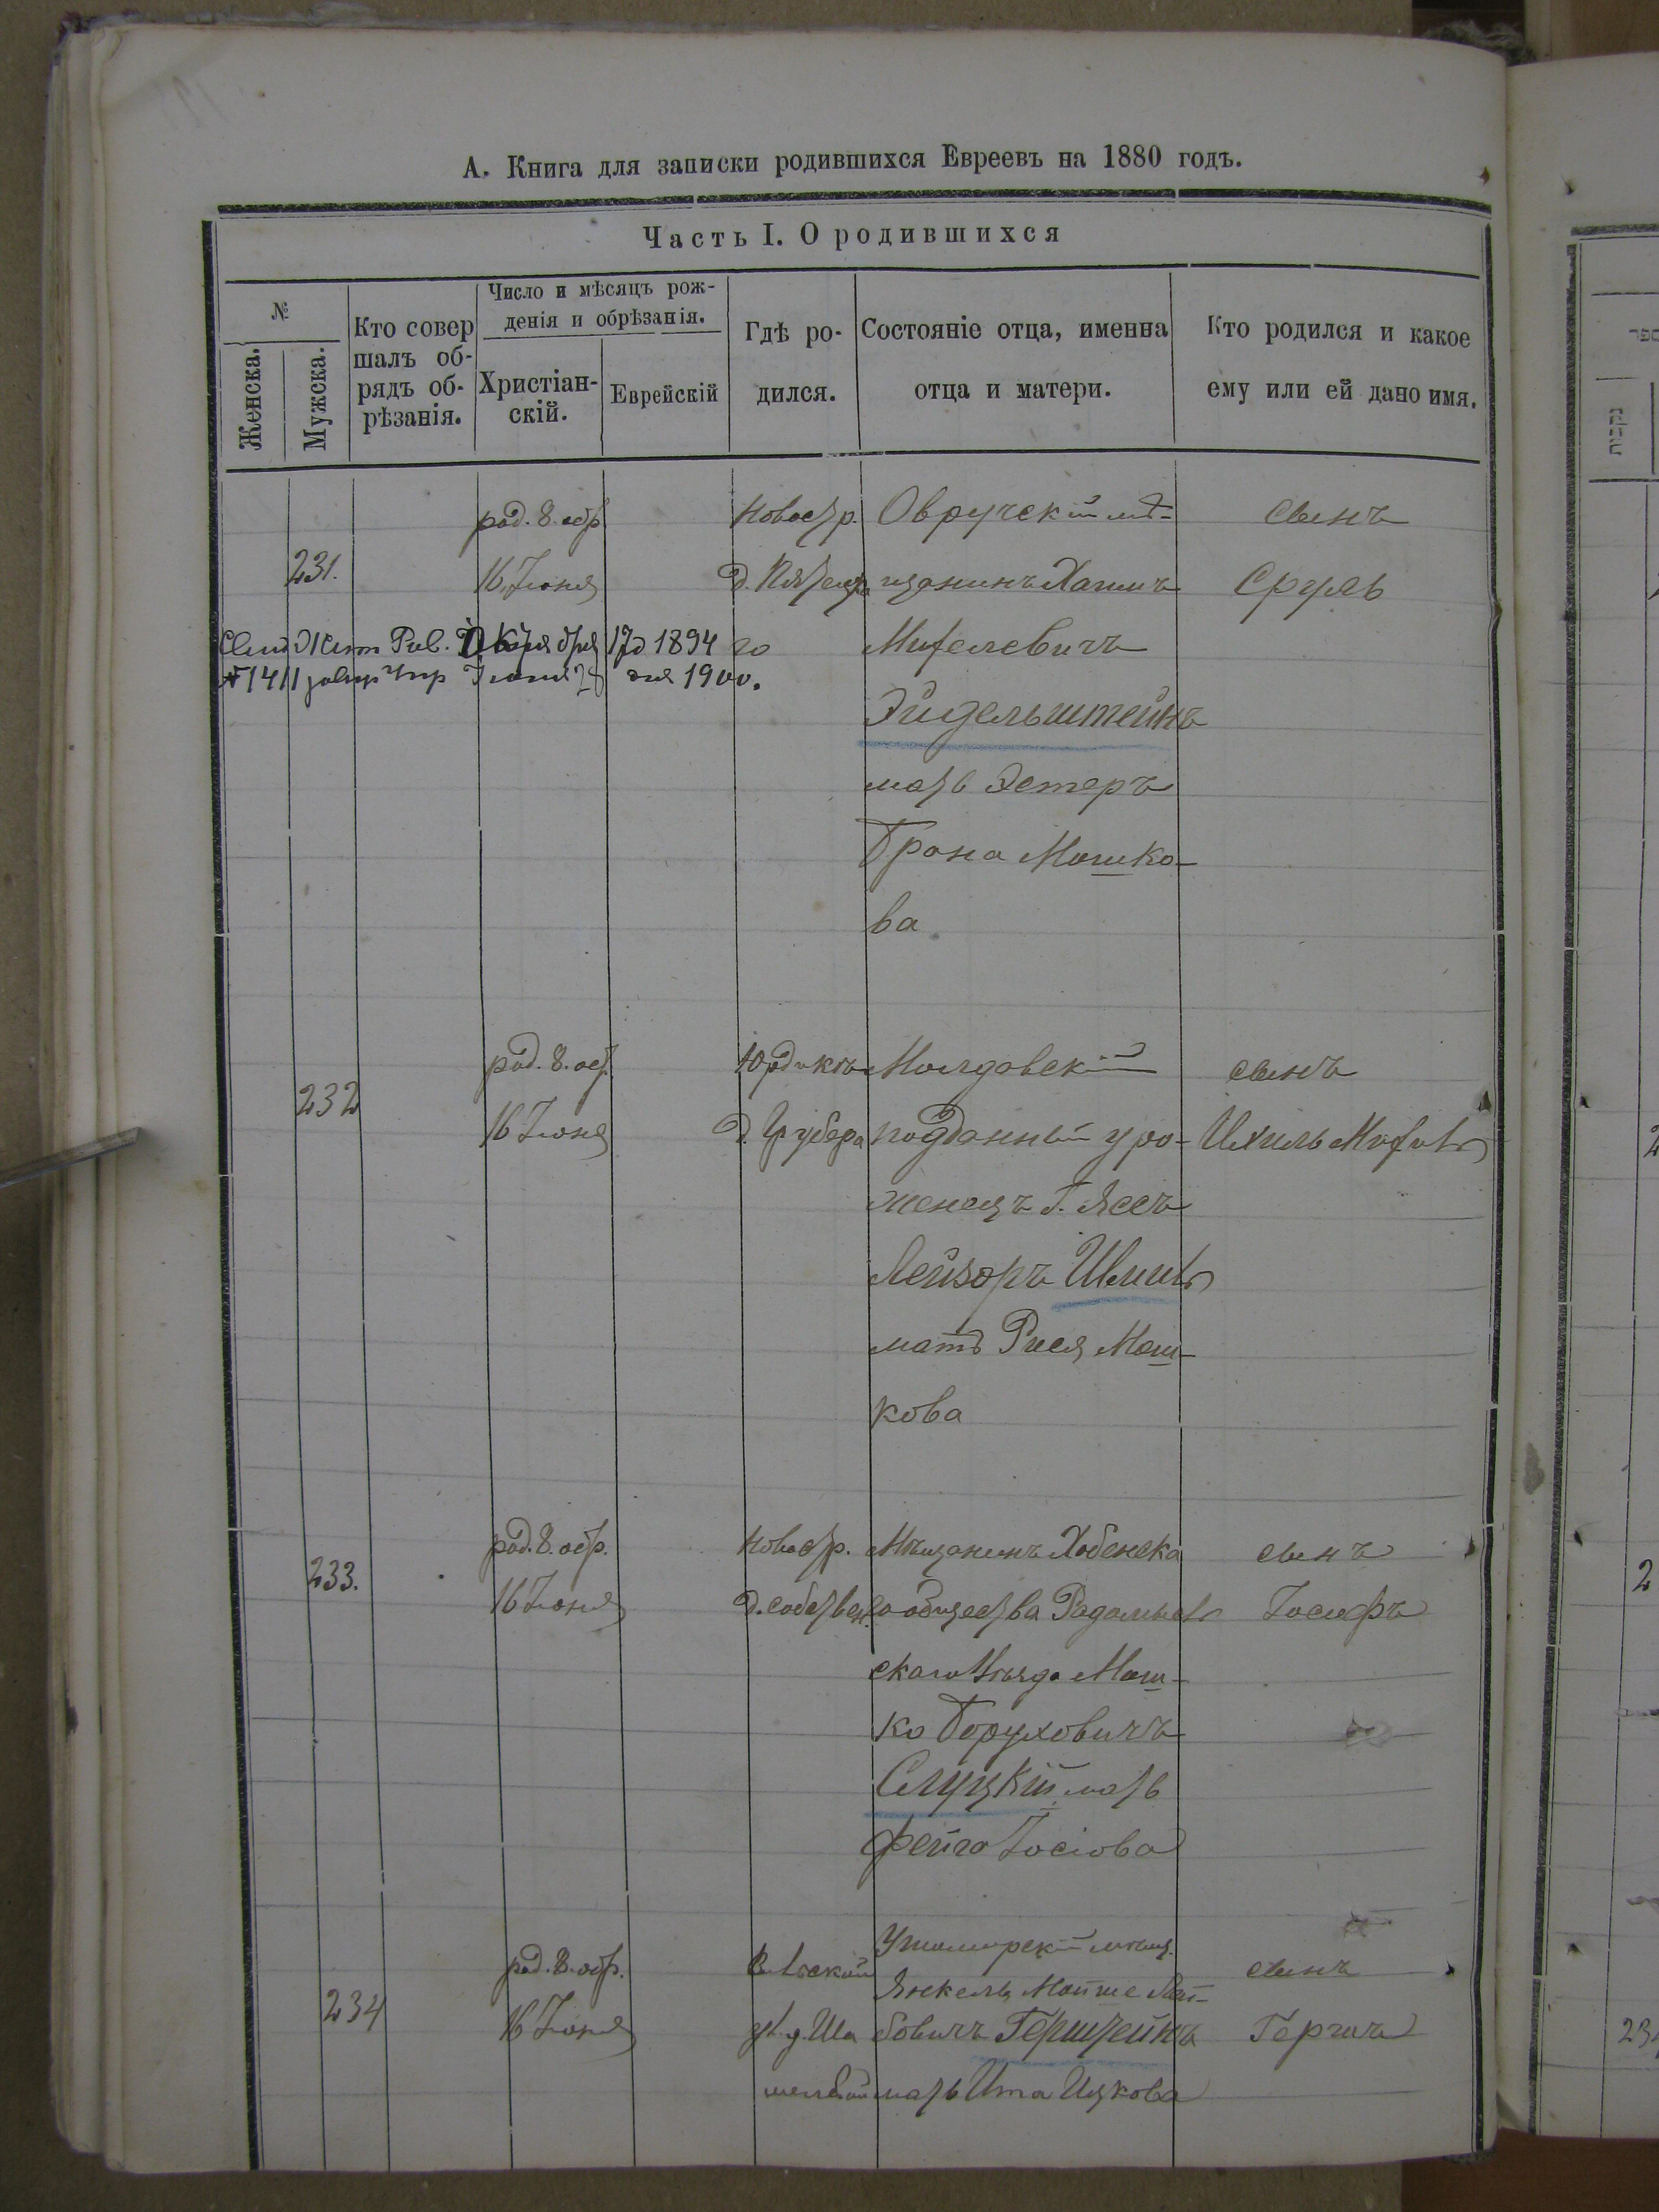 А. Книга для записки родившихся Евреевъ на 1880 годъ.
Часть I. О родившихся
№
Женска.
Мужска.
Кто совер
шалъ об-
рядъ об-
рѣзанія.
Число и мѣсяцъ рож-
денія и обрѣзанія.
Христіан-
скій.
Еврейскій
Гдѣ ро-
дился.
Состояніе отца, именна
отца и матери.
Кто родился и какое
ему или ей дано имя.
231.
род. 8. обр
16 Іюня
Новостр.
Овручскій мѣ-
щанинъ Хаимъ
Мителевичъ
Эйдельштейнъ
мать Эстеръ
Брана Мошко-
ва
сынъ
Сруль
1894
Іюня 28 дня 1900.
232
род. 8. об.
16 Іюня
д. Грубера
Молдавскій
подданный уро-
женецъ г. Яссъ
Лейзоръ
мать Рися Мош-
кова
сынъ
Ихиль
233.
род. 8. обр.
16 Іюня
Новостр.
д. собствен.
Мѣщанинъ Хабенска
го общества Радомысль
скаго Уѣзда Мош-
ко Боруховичъ
Слуцкій мать
Фейга Іосіова
сынъ
Іосифъ
234
род. 8. обр.
16 Іюня
Ушомирскій мѣщ.
Янкель Мойше Лей-
бовичъ Герштейнъ
мать Ита Ицкова
сынъ
Гершъ